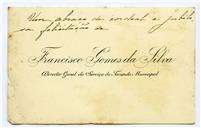 Um abraço de cordeal e jubilo
sa felicitação de
Francisco Gomes da Silva
Director Geral do Serviço da Fazenda Municipal